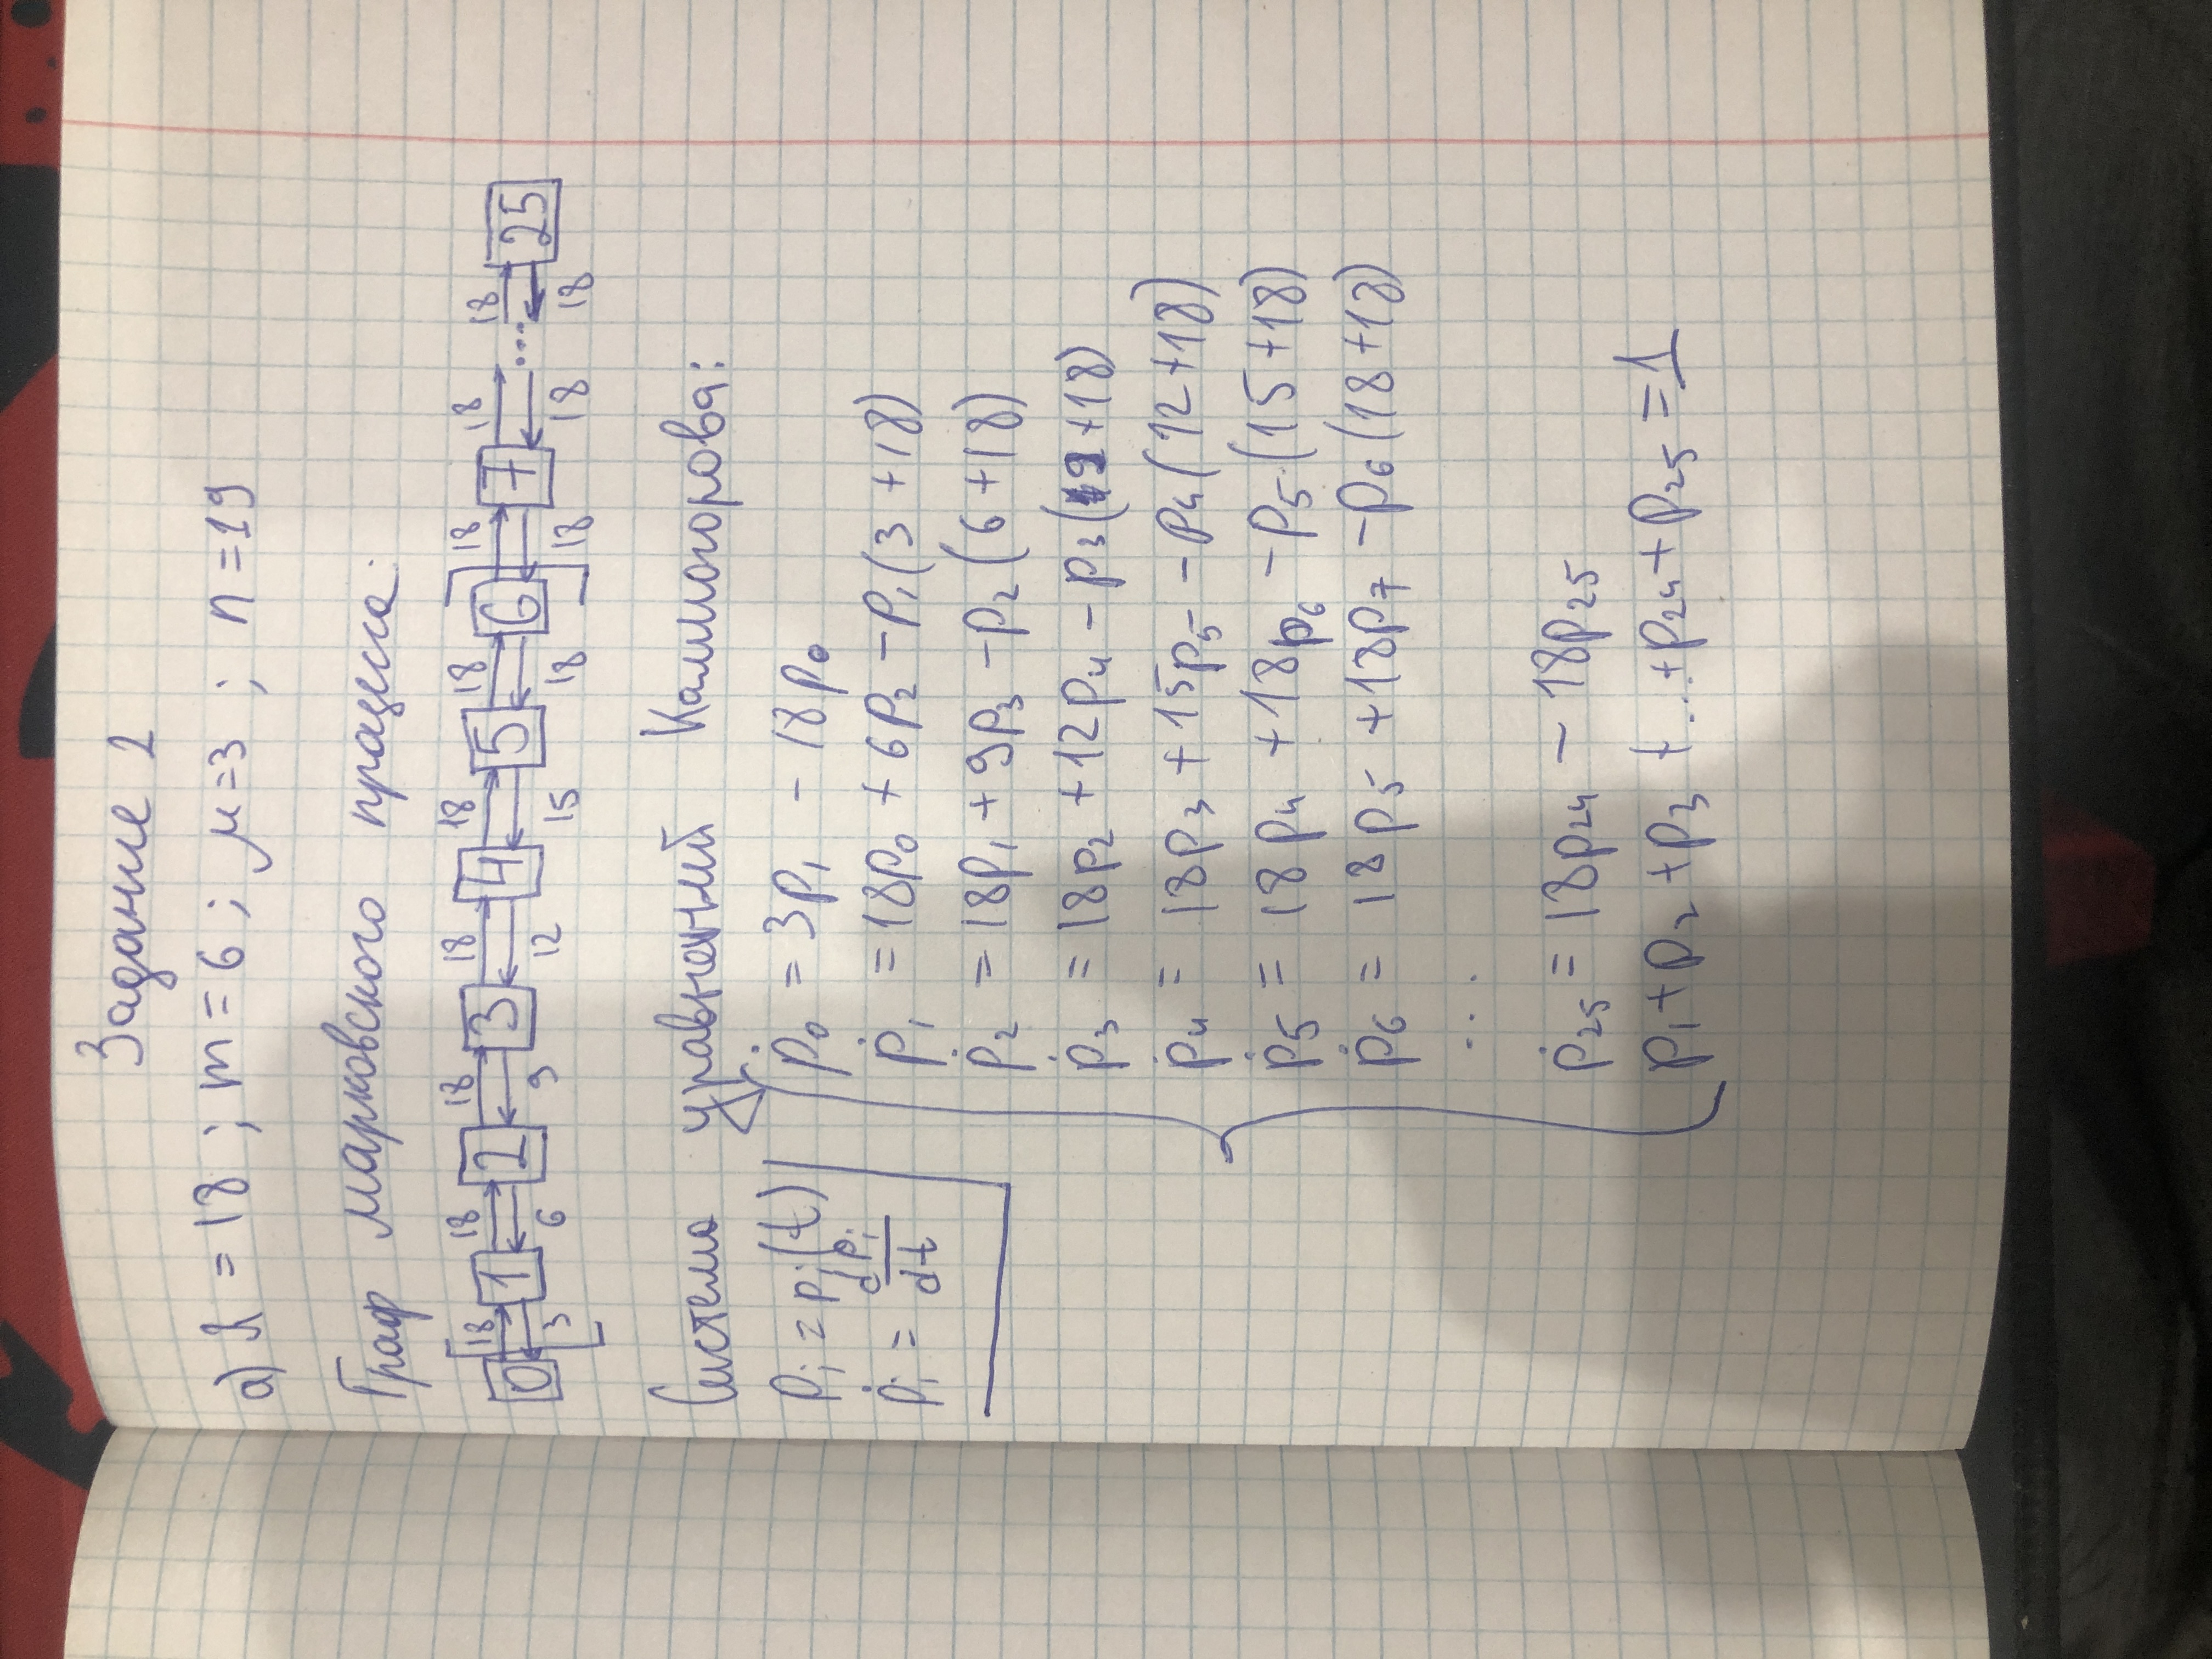 Задание 2
а) λ = 18 ; m = 6 ; μ = 3 ; n = 19
Граф марковского процесса:
18 18 18 18 18 18 18 18 18
0 1 2 3 4 5 6 7 ... 25
3 6 9 12 15 18 18 18 18
Система уравнений Калмогорова:
pᵢ = pᵢ(t)
ṗᵢ = dpᵢ/dt
ṗ₀ = 3p₁ - 18p₀
ṗ₁ = 18p₀ + 6p₂ - p₁(3 + 18)
ṗ₂ = 18p₁ + 9p₃ - p₂(6 + 18)
ṗ₃ = 18p₂ + 12p₄ - p₃( +18)
ṗ₄ = 18p₃ + 15p₅ - p₄(12 + 18)
ṗ₅ = 18p₄ + 18p₆ - p₅(15 + 18)
ṗ₆ = 18p₅ + 18p₇ - p₆(18 + 18)
...
ṗ₂₅ = 18p₂₄ - 18p₂₅
p₁ + p₂ + p₃ + ... + p₂₄ + p₂₅ = 1